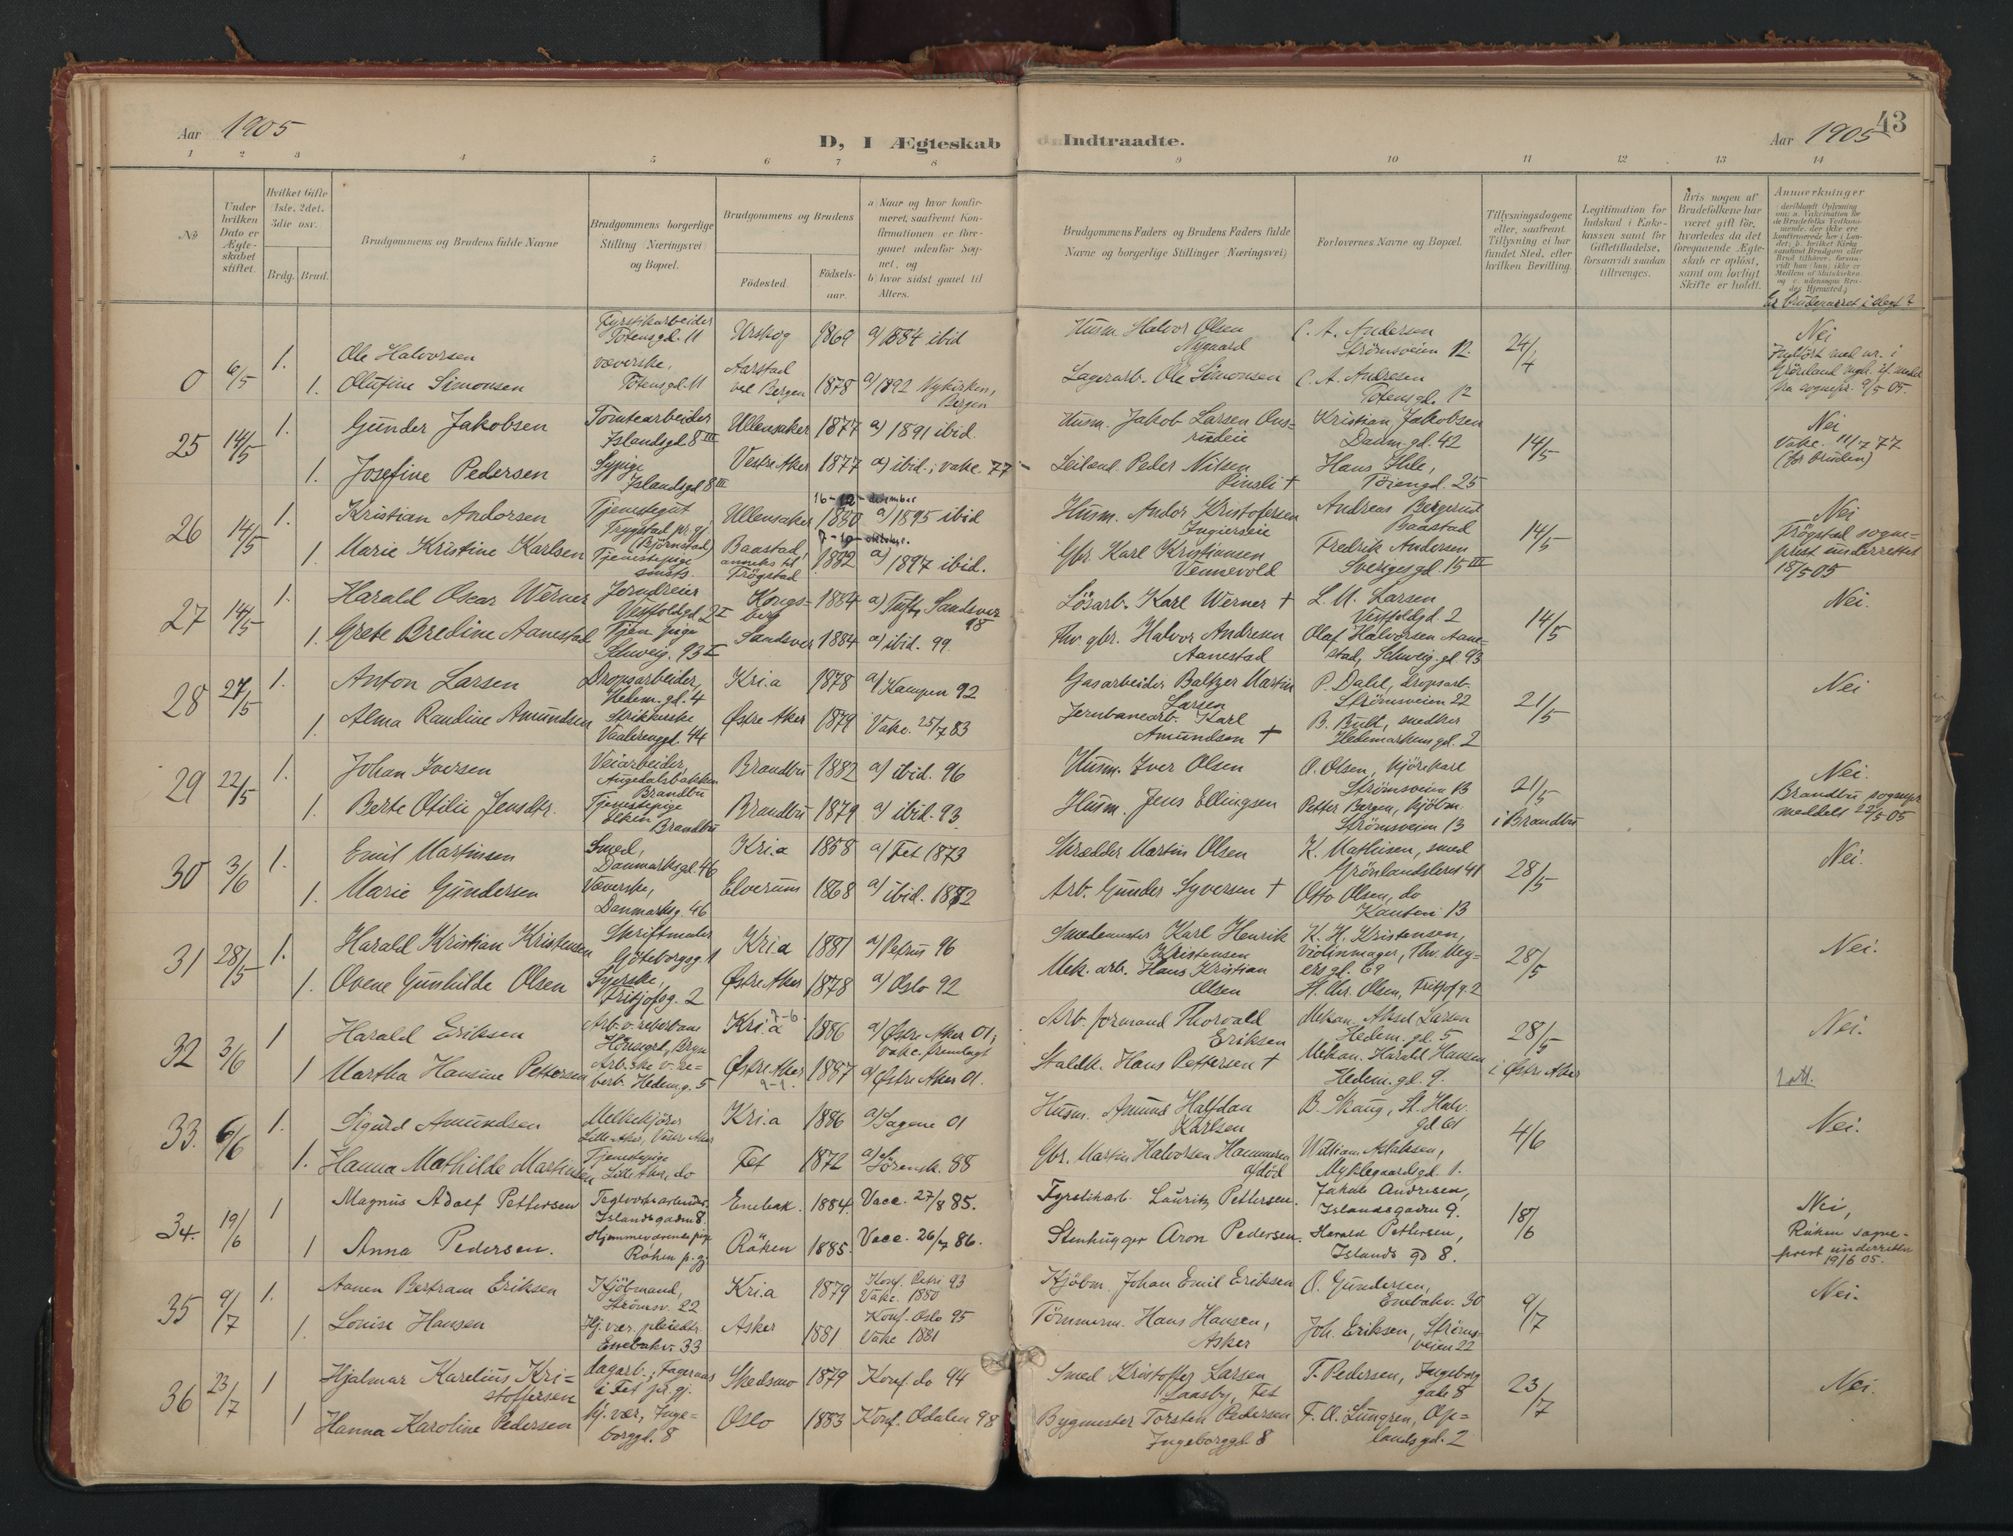 Aar 1905
D, I Ægteskab Indtraadte.
Aar 1905
43
1 2 3 4 5 6 7 8 9 10 11 12 13 14
№
Under hvilken Dato er Ægteskabet stiftet.
Hvilket Gifte 1ste, 2det, 3die osv.
Brdg. Brud.
Brudgommens og Brudens fulde Navne
Brudgommens borgerlige Stilling (Næringsvei) og Bopæl.
Brudgommens og Brudens
Fødested.
Fødselsaar.
a) Naar og hvor konfirmeret, saafremt Konfirmationen er foregaaet udenfor Sognet, og
b) hvor sidst gaaet til Alters.
Brudgommens Faders og Brudens Faders fulde Navne og borgerlige Stillinger (Næringsvei)
Forlovernes Navne og Bopæl.
Tillysningsdagene eller, saafremt Tillysning ei har fundet Sted, efter hvilken Bevilling.
Legitimation for Indskud i Enkekassen samt for Giftetilladelse, forsaavidt saadan tiltrænges.
Hvis nogen af Brudefolkene har været gift før, hvorledes da det foregaaende Ægteskab er opløst, samt om lovligt Skifte er holdt.
Anmærkninger
Er brudeparret i slegt?
0 6/5 1. Ole Halvorsen Fyrstikarbeider Totensgd. 11 Urskog 1869 a) 1884 ibid Husm. Halvor Olsen Nygaard C. A. Andersen Strømsveien 12. 24/4 Nei
1. Olufine Simonsen væverske, Totensgd. 11 Aarstad ved Bergen 1878 a) 1892 Nykirken, Bergen Lagerarb. Ole Simonsen C. A. Andresen Totensgd. 12 Indført med nr. i Grønland
25 14/5 1. Gunder Jakobsen Tomtearbeider Islandsgd. 8 III Ullensaker 1877 a) 1891 ibid. Husm. Jakob Larsen Kristian Jakobsen Danm.gd. 42 14/5 Nei
1. Josefine Pedersen Sypige Islandsgd. 8 III Vestre Aker 1877 a) ibid; vakc. 77 Leiland Peder Nilsen Rinsli + Hans Hole, Tøiengd. 25 Vakc. 11/7 77 (for bruden)
26 14/5 1. Kristian Andorsen Tjenestegut Trygstad pr. gj. (Bjørnstad) Ullensaker 16-12- desember 1880 a) 1895 ibid Husm. Andor Kristofersen Ingierseie Andreas Bergerud Baastad 14/5 Nei
1. Marie Kristine Karlsen Tjenestepige smsts. Baastad, anneks til Trøgstad 7-10- oktober. 1882 a) 1897 ibid. Gbr. Karl Kristiansen Vennevold Fredrik Andersen Sverigesgd. 15 III Trøgstad sogneprest underrettet 18/5 05
27 14/5 1. Harald Oscar Werner Jerndreier Vestfoldgd. 2 I Kongsberg 1884 a) Tuft, Sandsver 98 Løsarb. Karl Werner + L. M. Larsen Vestfoldgd. 2 14/5 Nei.
1. Grete Bredine Aanestad Tjen. pige Schweig. 93 I Sandsver 1884 a) ibid. 99. Fhv. gbr. Halvor Andresen Aanestad Olaf Halvorsen Aanestad, Schweig. gd 93
28 27/5 1. Anton Larsen Dropsarbeider, Hedem. gd. 4 Kri.a 1878 a) Kampen 92 Gasarbeider Baltzer Martin Larsen P. Dahl, dropsarb. Strømsveien 22 21/5 Nei
1. Alma Randine Amundsen Strikkerske Vaalerenggd. 44 Østre Aker 1879 Vakc. 25/7 83 Jernbanearb. Karl Amundsen + B. Bult, snedker Hedemarkensgd. 2
29 22/5 1. Johan Iversen Veiarbeider, Augedalsbakken Brandbu Brandbu 1882 a) ibid. 96 Husm. Iver Olsen O. Olsen, kjørekarl Strømsveien 13 21/5 Nei.
1. Berte Otilie Jensdtr. Tjenestepige Elken Brandbu Brandbu 1879 a) ibid. 93. Husm. Jens Ellingsen Petter Bergen, kjøbm. Strømsveien 13 i Brandbu Brandbu sognepr. meddelt 22/5 05
30 3/6 1. Emil Martinsen Smed, Danmarksgd. 46 Kri.a 1858 a) Fet 1873 Skrædder Martin Olsen K. Mathisen, smed Grønlandsleret 41 28/5 Nei.
1. Marie Gundersen Væverske, Danmarksg. 46 Elverum 1868 a) ibid. 1882 Arb. Gunder Syversen + Otto Olsen, do Kanten 13
31 28/5 1. Harald Kristian Kristensen Skriftmaler Gøteborgsg. 1 Kri.a 1881 a) Petrus 96 Smedemester Karl Henrik Kristensen K. H. Kristensen, violinmager, Thv. Meyersgd. 69 28/5 Nei.
1. Ovene Gunhilde Olsen Syerske, Fritjofsg. 2 Østre Aker 1878 a) Oslo 92 Mek. arb. Hans Kristian Olsen H. Chr. Olsen, Fritjofg. 2
32 3/6 1 Harald Eriksen Arb. v. reberbane Hønsegrd., Bryn Kri.a 7-6 1886 a) Østre Aker 01, vakc. fremlagt Arb. formand Thorvald Eriksen Mekan. Aksel Larsen Hedem. gd. 5 28/5 Nei.
1 Martha Hansine Pettersen Arb.ske v. reberb. Hedemg. 5 Østre Aker 9-1. 1887 a) Østre Aker 01. Staldk. Hans Pettersen + Mekan. Harald Hansen Hedem. gd. 9. i Østre Aker
33. 6/6 1. Sigurd Amundsen Melkekjører Lille Aker, Vestre Aker Kri.a 1886 a) Sagene 01 Husm. Amund Halfdan Karlsen B. Skaug, St. Halv. gd 61 4/6 Nei.
1. Hanna Mathilde Martinsen Tjenestepige Lille Aker, do Fet 1872 a) Sørensk. 88 Gbr. Martin Halvorsen Hammeren afdød William Aslaksen, Myklegaardsgd. 1.
34. 19/6 1 Magnus Adolf Pettersen Teglværksarbeider. Islandsgaden 8. Enebak. 1884. Vacc. 27/8 85. Fyrstikarb. Lauritz Pettersen. Jakob Andresen, Islandsgaden 9. 18/6 Nei,
1 Anna Pedersen. Hjemmeværende pige Røken p. gj. Røken 1885. Vacc. 26/7 86. Stenhugger Aron Pedersen. Harald Pettersen, Islands gd 8. Røken sogneprest underrettet 19/6 05.
35 9/7 1. Aanen Bertram Eriksen Kjøbmand, Strømsv. 22 Kri.a 1879 Konf. Petri 93 Vakc. 1880 Kjøbm. Johan Emil Eriksen O. Gundersen, Enebakv. 30 9/7 Nei.
1. Louise Hansen Hj. vær. pleiedtr. Enebakv. 33 Asker 1881 Konf. Oslo 95 Vakc 1881 Tømmerm. Hans Hansen, Asker Joh. Eriksen, Strømsveien 22
36 23/7 1 Hjalmar Karelius Kristoffersen dagarb., Fageraas i Fet pr. gj. Skedsmo 1879 Konf. do 94 Smed Kristoffer Larsen Laasby, Fet T. Pedersen, Ingeborg gade 8 23/7 Nei.
1 Hanna Karoline Pedersen hj. vær., Ingeborggd. 8 Oslo 1883 Konf. Odalen 98 Bygmester Torsten Pedersen Ingeborggd. 8 F. O. Lungren, Oplandsgd. 2